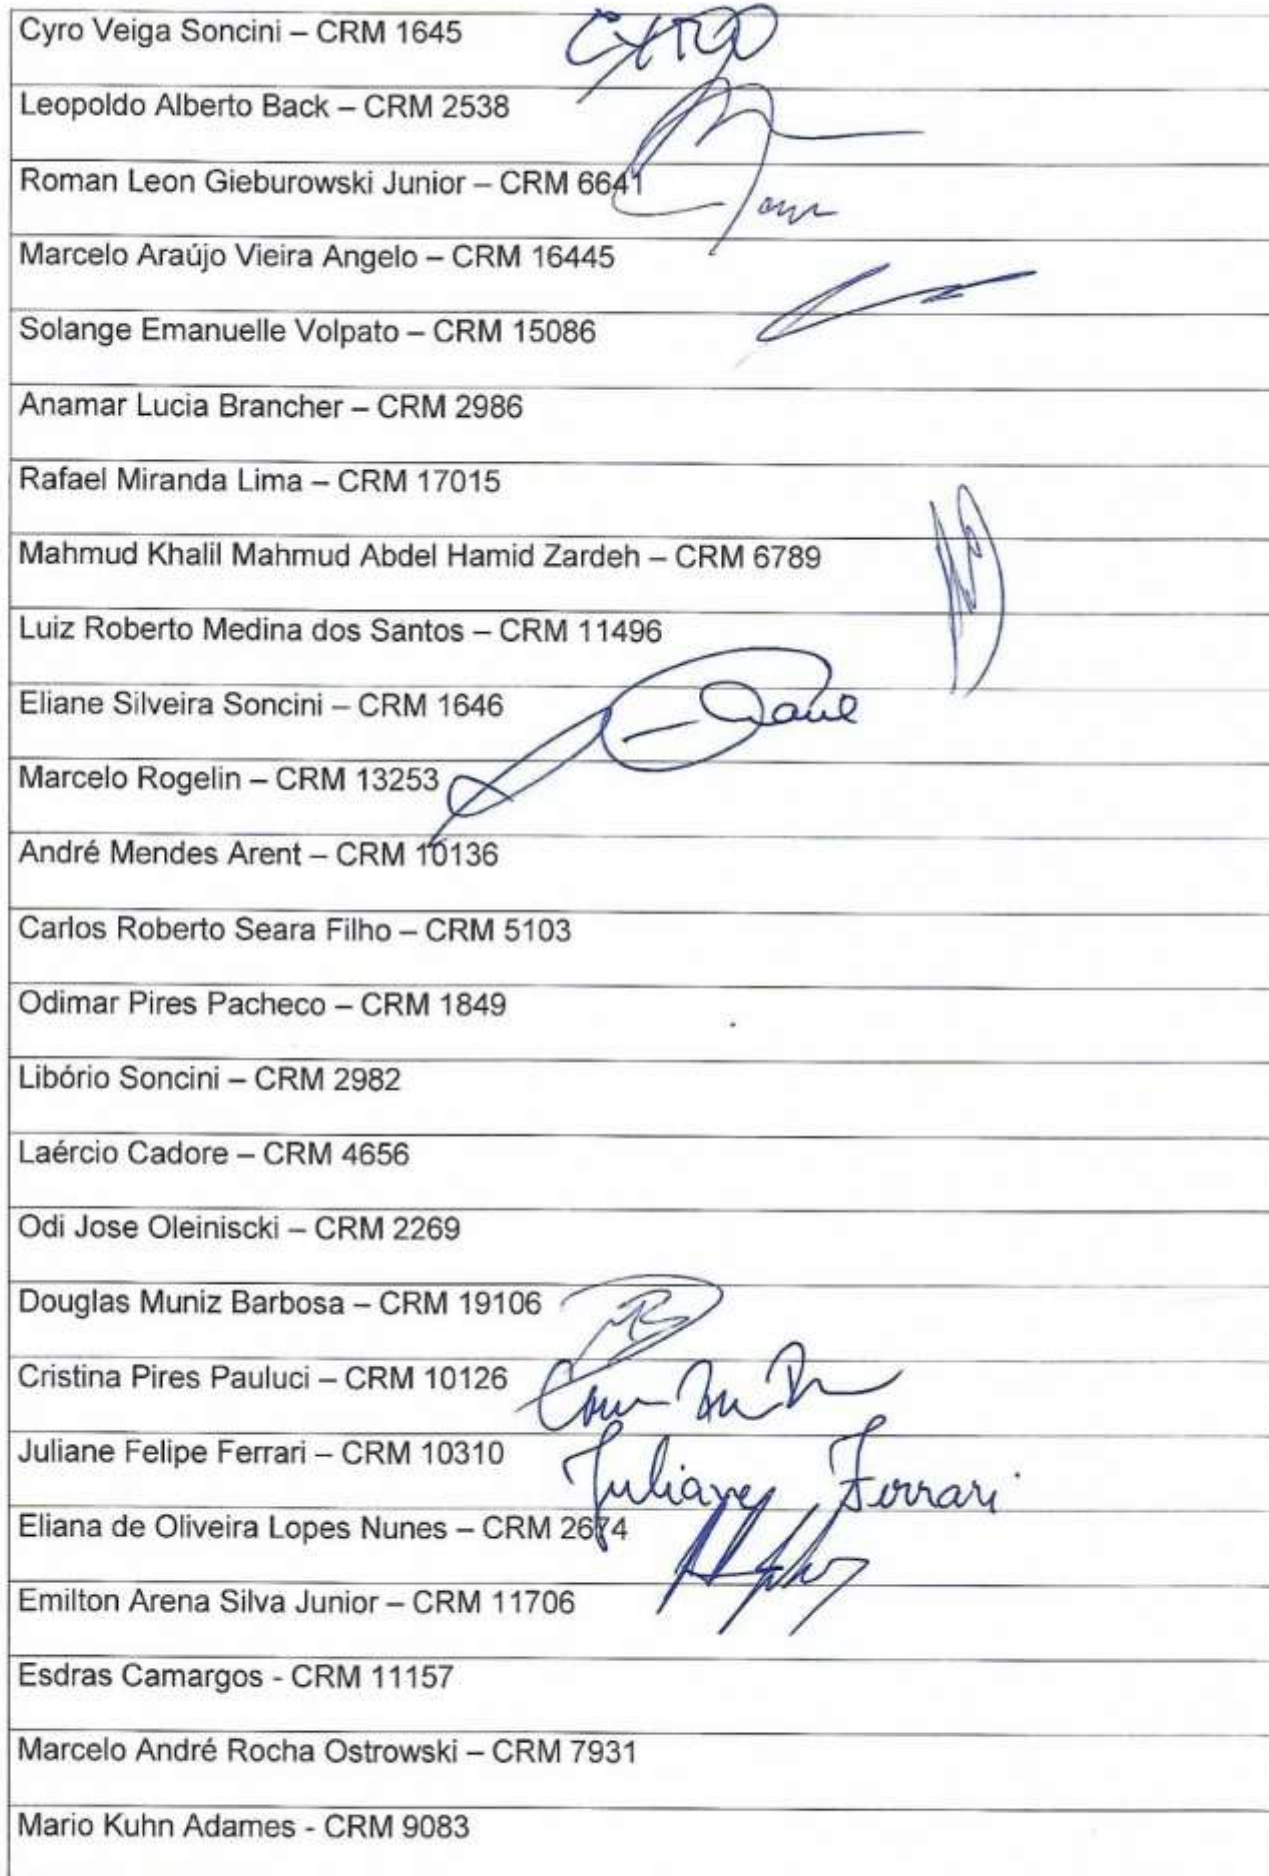 Cyro Veiga Soncini – CRM 1645
Cyro
Leopoldo Alberto Back – CRM 2538
Roman Leon Gieburowski Junior – CRM 6641
Marcelo Araújo Vieira Angelo – CRM 16445
Solange Emanuelle Volpato – CRM 15086
Anamar Lucia Brancher – CRM 2986
Rafael Miranda Lima – CRM 17015
Mahmud Khalil Mahmud Abdel Hamid Zardeh – CRM 6789
Luiz Roberto Medina dos Santos – CRM 11496
Eliane Silveira Soncini – CRM 1646
Marcelo Rogelin – CRM 13253
André Mendes Arent – CRM 10136
Carlos Roberto Seara Filho – CRM 5103
Odimar Pires Pacheco – CRM 1849
Libório Soncini – CRM 2982
Laércio Cadore – CRM 4656
Odi Jose Oleiniscki – CRM 2269
Douglas Muniz Barbosa – CRM 19106
Cristina Pires Pauluci – CRM 10126
Juliane Felipe Ferrari – CRM 10310
Juliane Ferrari
Eliana de Oliveira Lopes Nunes – CRM 2674
Emilton Arena Silva Junior – CRM 11706
Esdras Camargos - CRM 11157
Marcelo André Rocha Ostrowski – CRM 7931
Mario Kuhn Adames - CRM 9083